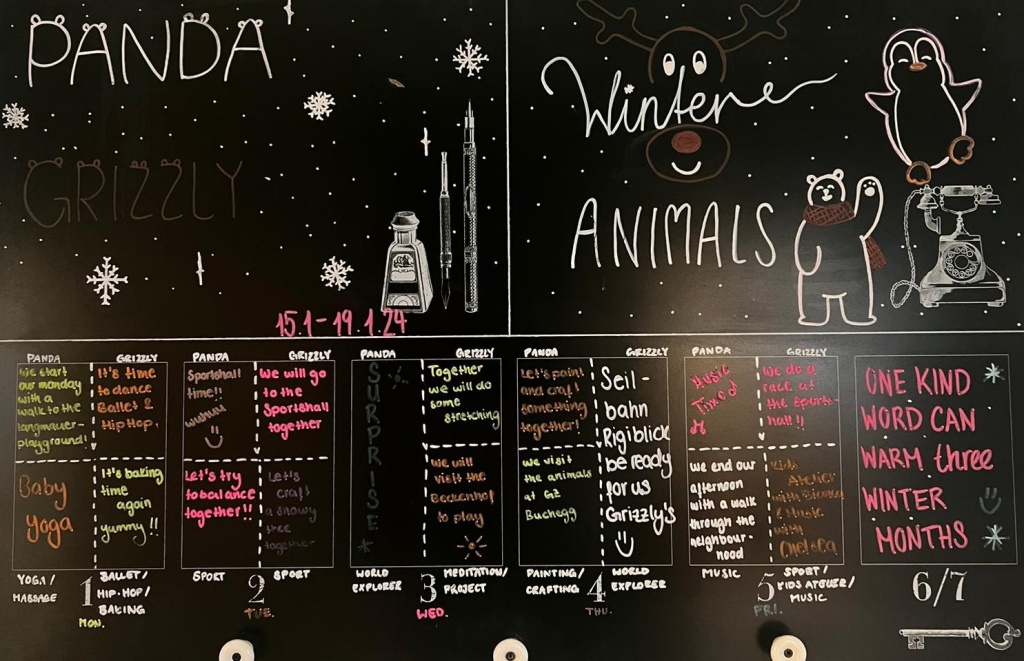 PANDA
GRIZZLY
Winter
ANIMALS
15.1-19.1.24
PANDA
we start
our monday
with a
walk to the
langmauer-
playground!
Baby
Yoga
YOGA /
MASSAGE
GRIZZLY
It's time
to dance
Ballet &
Hip Hop.
It's baking
time
again
yummy!!
BALLET /
HIP-HOP /
BAKING
1
MON.
PANDA
Sportshall
time!!
wuhuu
Let's try
to balance
together!!
SPORT
GRIZZLY
We will go
to the
Sportshall
together
Let's
craft
a snowy
tree
together
SPORT
2
TUE.
PANDA
SURPRISE
WORLD
EXPLORER
GRIZZLY
Together
we will do
some
stretching
we will
visit the
Beckenhof
to play
MEDITATION/
PROJECT
3
WED.
PANDA
Let's paint
and craft
something
together!
we visit
the animals
at GZ
Buchegg
PAINTING/
CRAFTING
GRIZZLY
Seil-
bahn
Rigiblick
be ready
for us
Grizzly's
WORLD
EXPLORER
4
THU.
PANDA
Music
Time
we end our
afternoon
with a walk
through the
neighbour-
hood
MUSIC
GRIZZLY
We do a
race at
the Sports-
hall!!
Kids
Atelier
with
& Music
with
SPORT /
KIDS ATELIER /
MUSIC
5
FRI.
ONE KIND
WORD CAN
WARM three
WINTER
MONTHS
6/7